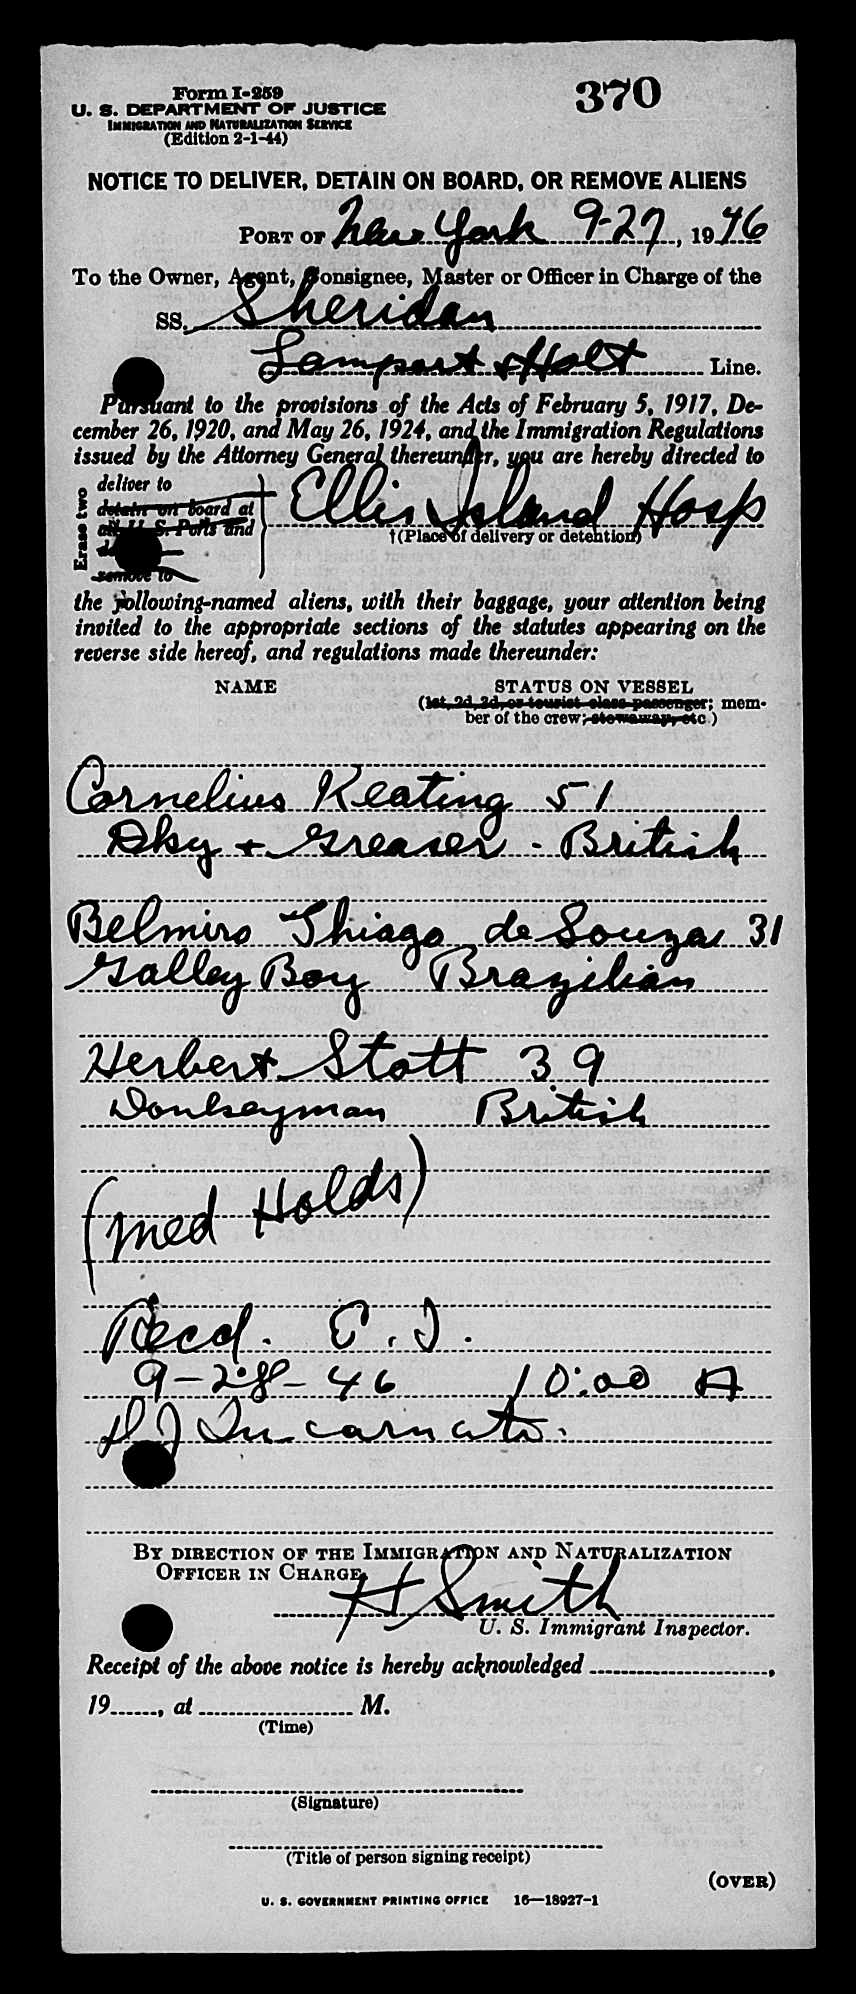 Form I-259
370
U. S. DEPARTMENT OF JUSTICE
IMMIGRATION AND NATURALIZATION SERVICE
(Edition 2-1-44)
NOTICE TO DELIVER, DETAIN ON BOARD, OR REMOVE ALIENS
PORT OF New York 9-27, 1946
To the Owner, Agent, Consignee, Master or Officer in Charge of the
SS. Sheridan
Lamport & Holt Line.
Pursuant to the provisions of the Acts of February 5, 1917, De-
cember 26, 1920, and May 26, 1924, and the Immigration Regulations
issued by the Attorney General thereunder, you are hereby directed to
Erase two
deliver to
detain on board at
all U. S. Ports and
remove to
Ellis Island Hosp
†(Place of delivery or detention)
the following-named aliens, with their baggage, your attention being
invited to the appropriate sections of the statutes appearing on the
reverse side hereof, and regulations made thereunder:
NAME STATUS ON VESSEL
(1st, 2d, 3d, or tourist class passenger; mem-
ber of the crew; stowaway, etc.)
Cornelius Keating 51
Dky + Greaser - British
Belmiro Thiago de Souza 31
Galley Boy Brazilian
Herbert Stott 39
Donkeyman British
(med Holds)
Recd. E. I.
9-28-46 10:00 A
D J Incarnato.
BY DIRECTION OF THE IMMIGRATION AND NATURALIZATION
OFFICER IN CHARGE,
H Smith
U. S. Immigrant Inspector.
Receipt of the above notice is hereby acknowledged
19, at M.
(Time)
(Signature)
(Title of person signing receipt)
(OVER)
U. S. GOVERNMENT PRINTING OFFICE 16—18927-1